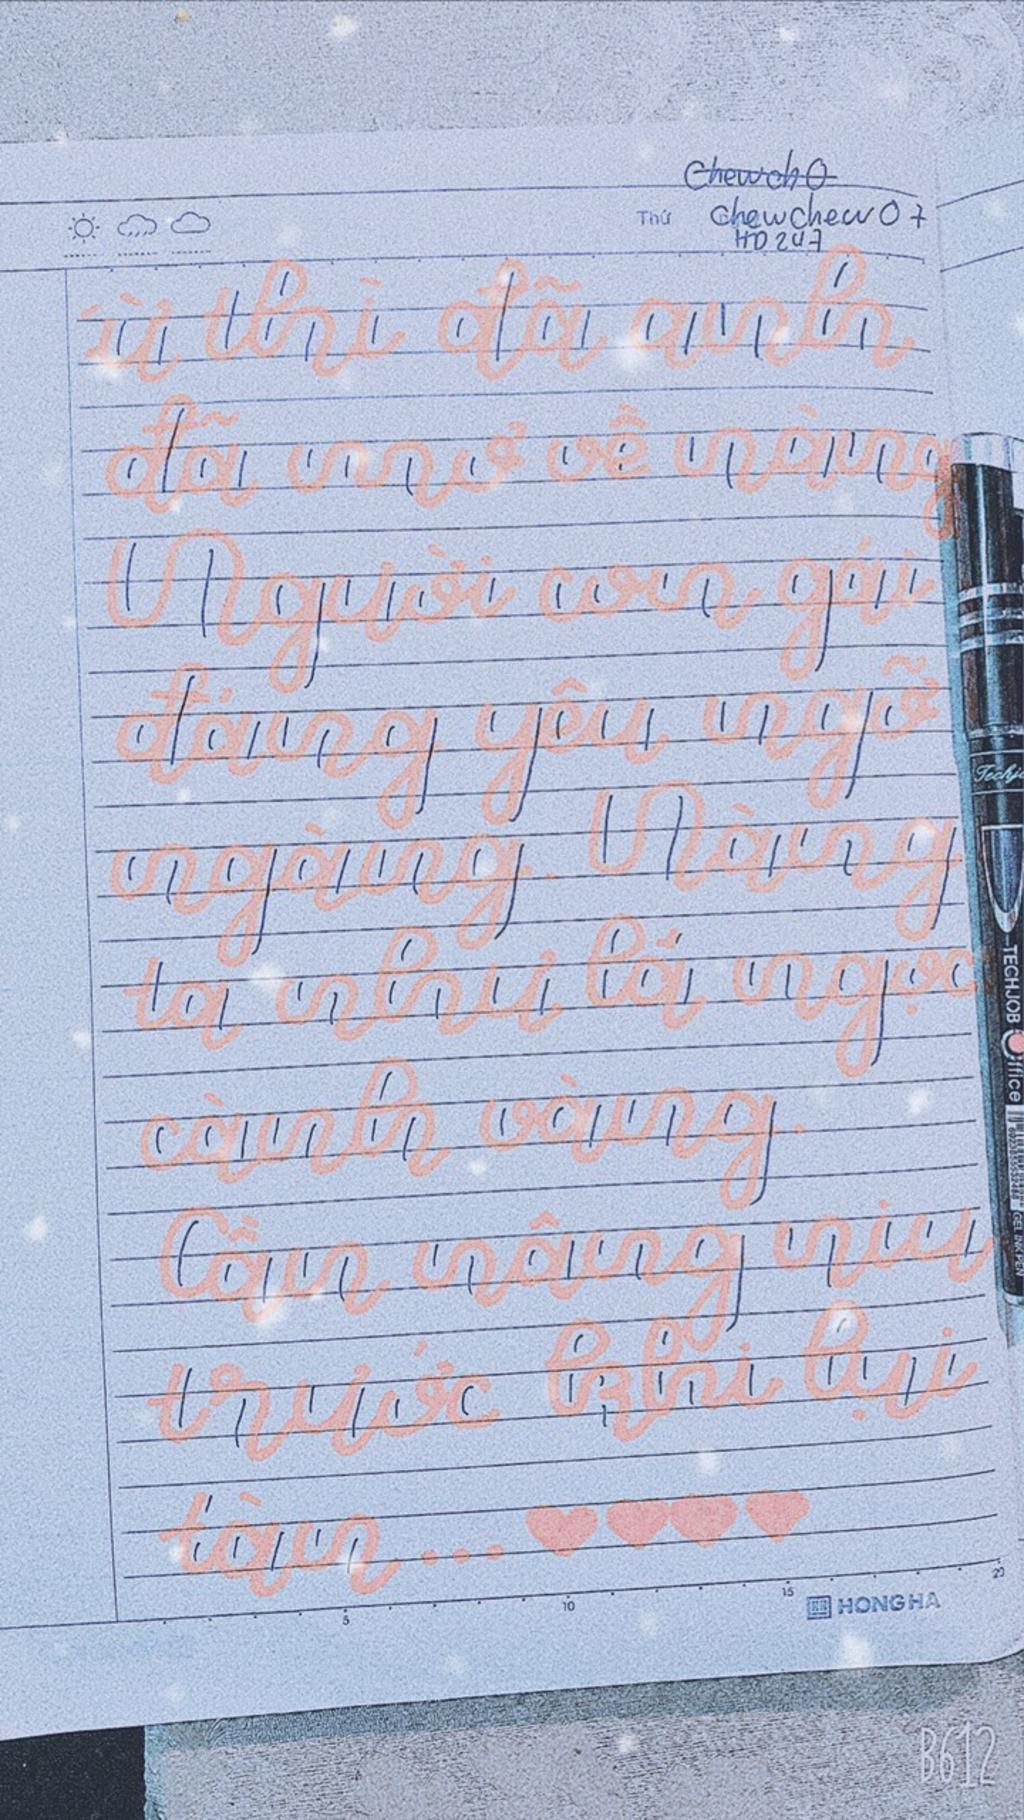 Chewch0
Thứ chewchew07
HD247
ừ thì đã anh
đã mơ về nàng
Người con gái
đáng yêu ngỡ
ngàng. Nàng
ta như lá ngọc
cành vàng.
Cần nâng niu
trước khi lụi
tàn...
5 10 15 20
HONG HA
Techjo
TECHJOB Office
GEL INK PEN
B612